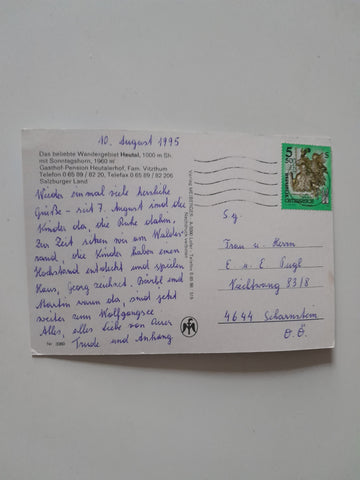 10. August 1995
Das beliebte Wandergebiet Heutal, 1000 m Sh.
mit Sonntagshorn, 1960 m
Gasthof-Pension Heutalerhof, Fam. Vitzthum
Telefon 0 65 89 / 82 20, Telefax 0 65 89 / 82 206
Salzburger Land
Wieder einmal viele herzliche
Grüße – seit 7. August sind die
Kinder da, die Ruhe dahin.
Zur Zeit sitzen wir am Waldes-
rand, die Kinder haben einen
Hochstand entdeckt und spielen
Haus, Georg zeichnet. Bärbl und
Martin waren da, sind jetzt
weiter zum Wolfgangsee
Alles, alles Liebe von Eurer
Trude und Anhang
Nr. 3360
Nachdruck verboten
5 50
S
REPUBLIK
ÖSTERREICH
Sg.
Frau u. Herrn
E. u. E. Pugl
Viechtwang 83/8
4644 Scharnstein
O.Ö.